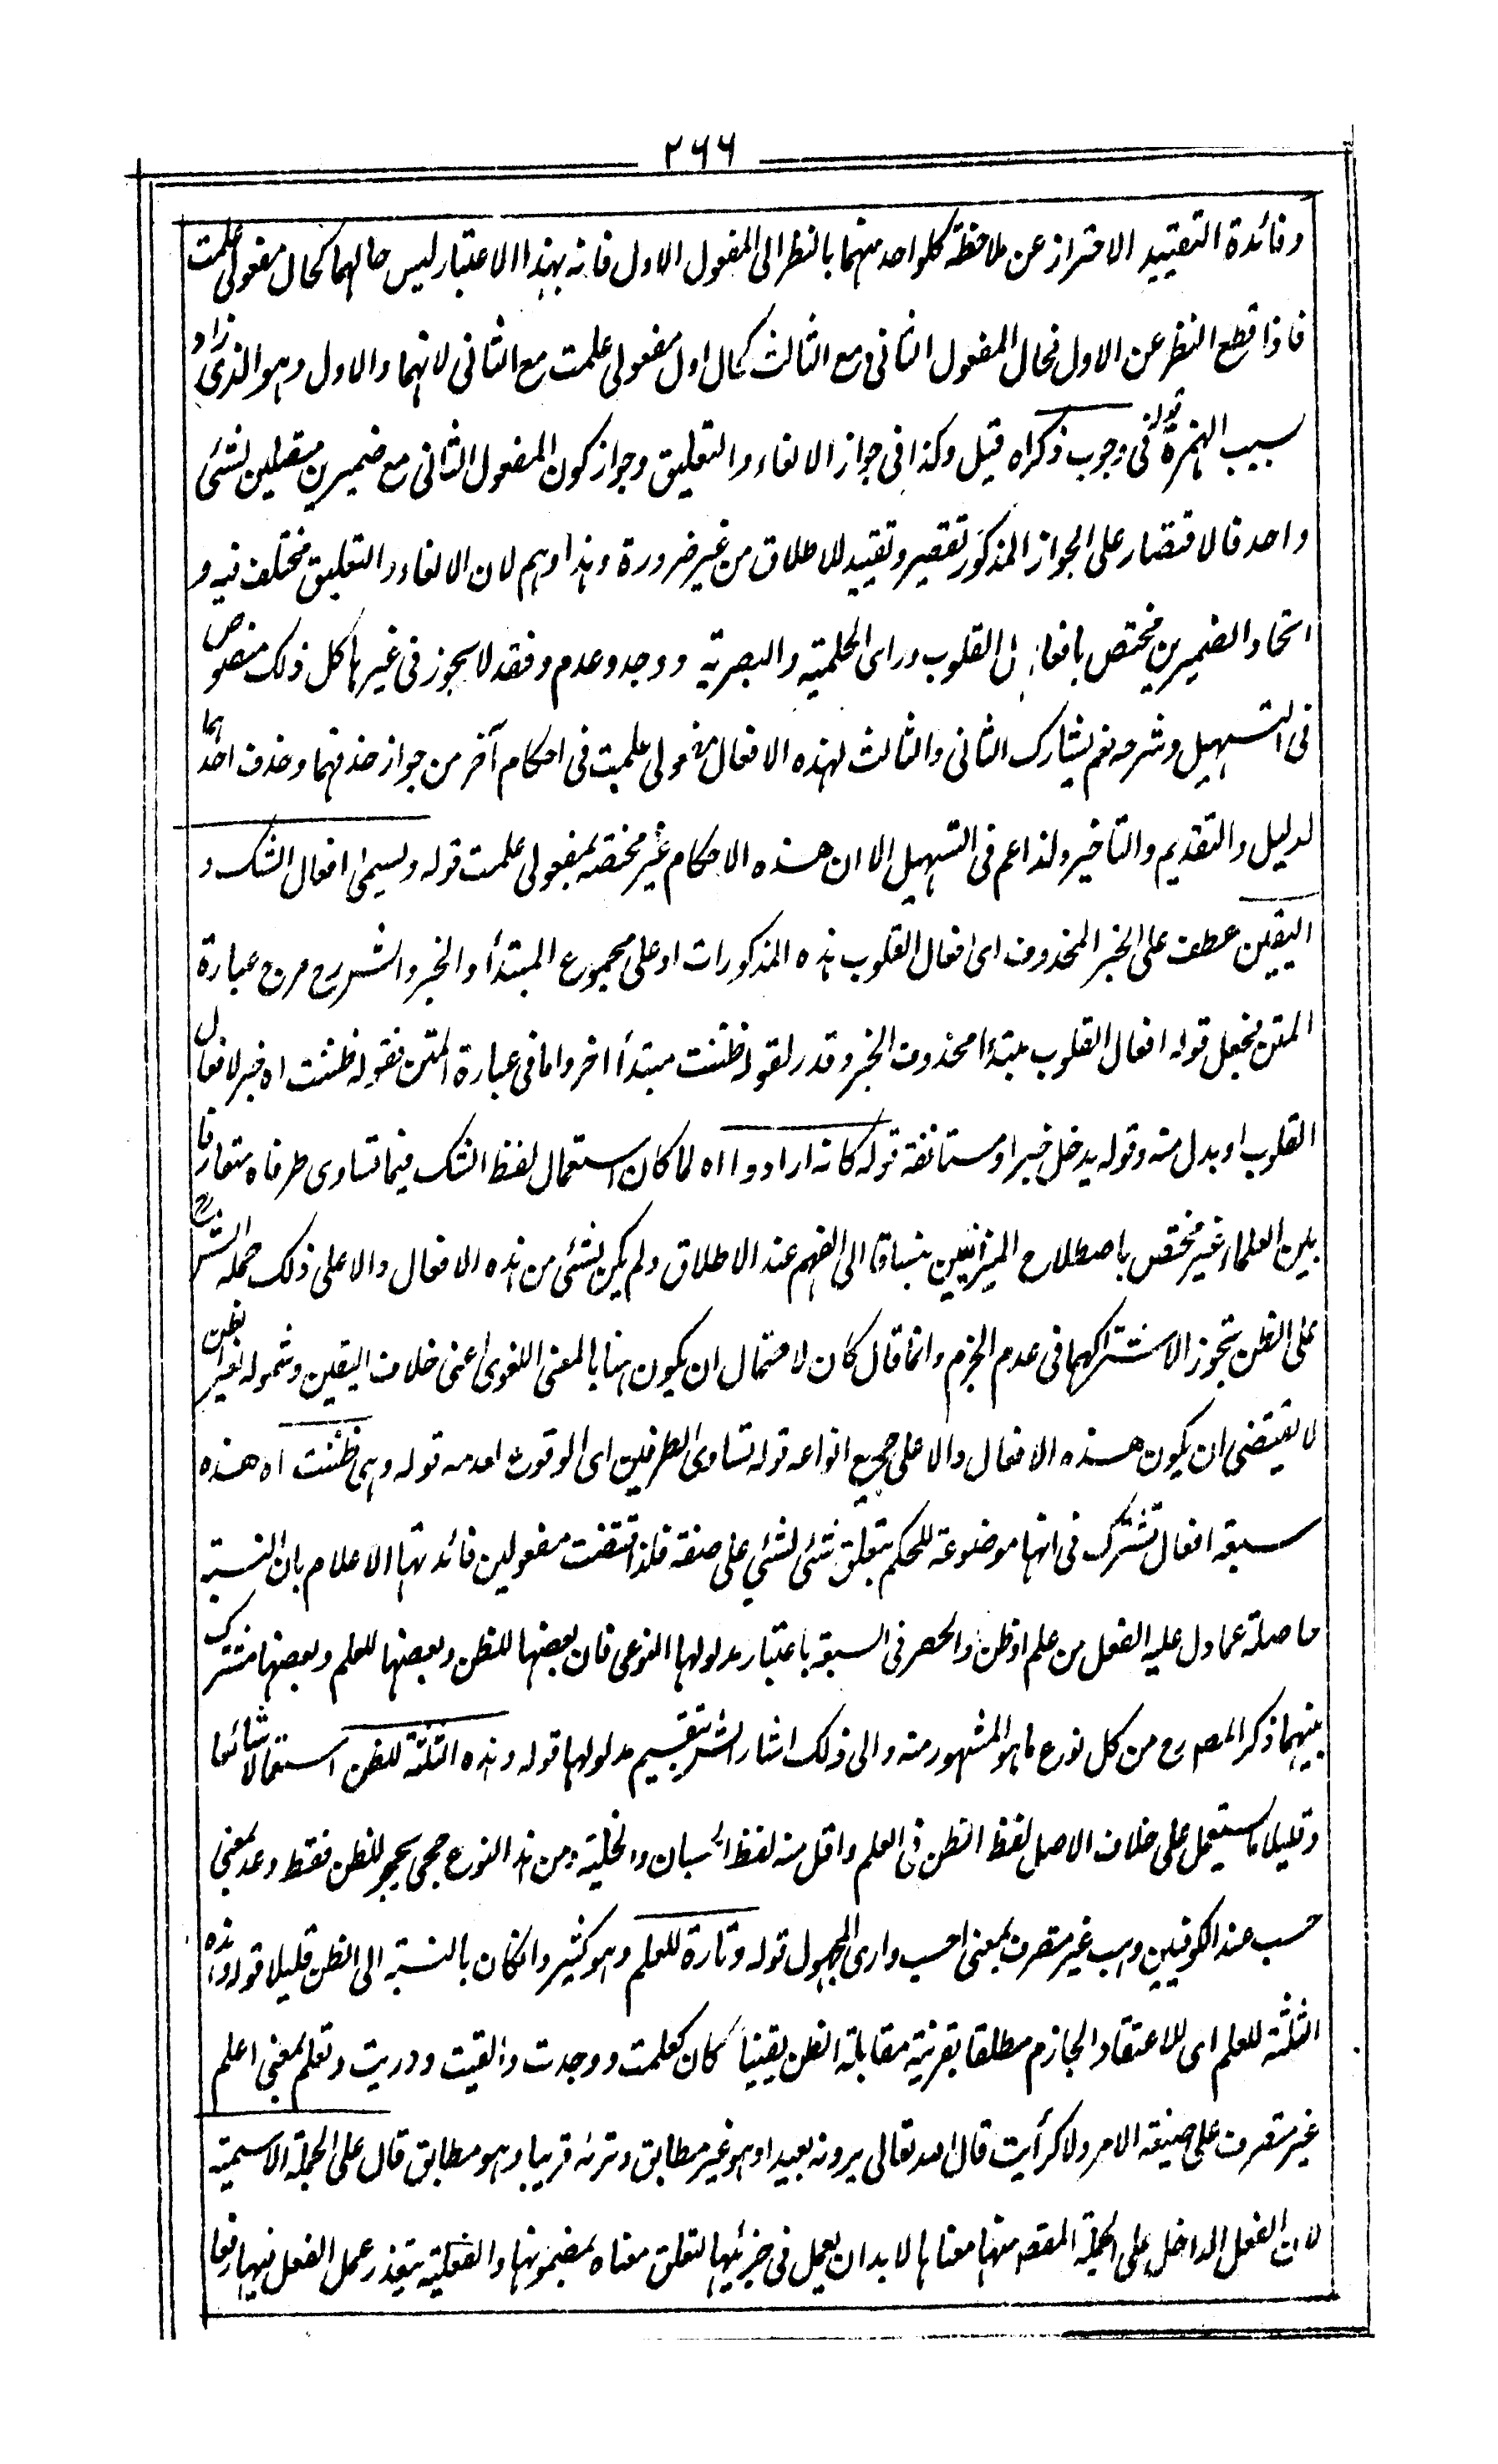 ٢٦٦
وفائدة التقييد الاحتراز عن ملاحظة كلواحد منهما بالنظر الى المفعول الاول فانه بهذا الاعتبار ليس حالهما كحال مفعولى علمت
فاذا قطع النظر عن الاول فحال المفعول الثانى مع الثالث كحال اول مفعولى علمت مع الثانى لانهما والاول وهو الذى زاد
سبب الهمزة قوله فى وجوب ذكراه قيل وكذا فى جواز الالغاء والتعليق وجواز كون المفعول الثانى مع ضميرين متصلين لشئى
واحد فالاقتصار على الجواز المذكور تقصير وتقييد للاطلاق من غير ضرورة وهذا وهم لان الالغاء والتعليق مختلف فيه و
اتحاد الضميرين مختص بافعال القلوب وراى الحلمية والبصرية ووجد وعدم وفقد لا يجوز فى غيرها كل ذلك منصوص
فى التسهيل وشرحه نعم يشارك الثانى والثالث لهذه الافعال مفعولى علمت فى احكام آخر من جواز حذفهما وحذف احدهما
لدليل والتقديم والتاخير ولذا عم فى التسهيل الا ان هذه الاحكام غير مختصة بمفعولى علمت قوله ويسمى افعال الشك و
اليقين عطف على الخبر المحذوف اى افعال القلوب هذه المذكورات او على مجموع المبتدأ والخبر والشرح مزج عبارة
المتن بجعل قوله افعال القلوب مبتدأ محذوف الخبر وقدر لقوله ظننت مبتدأ اخر واما فى عبارة المتن فقوله ظننت اه خبر لافعال
القلوب او بدل منه وقوله يدخل خبر او مستانفة قوله كانه ارادوا اه لما كان استعمال لفظ الشك فيما تساوى طرفاه متعارفا
بين العلماء غير مختص باصطلاح الميزانيين منساقا الى الفهم عند الاطلاق ولم يكن لشئى من هذه الافعال دالا على ذلك حمله الش
على الظن تجوزا لاشتراكهما فى عدم الجزم وانما قال كان لاحتمال ان يكون هنا بالمعنى اللغوى اعنى خلاف اليقين وشموله لغير الظن
لا يقتضى ان يكون هذه الافعال دالا على جميع انواعه قوله تساوى الطرفين اى الوقوع او عدمه قوله وهى ظننت اه هذه
سبعة افعال تشترك فى انها موضوعة للحكم بتعلق شئى لشئي على صفة فلذا اقتضت مفعولين فائدتها الاعلام بان النسبة
حاصلة عما دل عليه الفعل من علم او ظن والحصر فى السبعة باعتبار مدلولها النوعى فان بعضها للظن وبعضها للعلم وبعضها مشترك
بينهما ذكر المصرح من كل نوع ما هو المشهور منه والى ذلك اشار الش بتقسيم مدلولها قوله وهذه الثلثة للظن استعمالا شائعا
وقليلا ما يستعمل على خلاف الاصل لفظ الظن فى العلم واقل منه لفظ الحسبان والخلية ومن هذا النوع حجى يحجو للظن فقط وعد بمعنى
حسب عند الكوفيين وهب غير متصرف بمعنى احسب وارى المجهول قوله وتارة للعلم وهو كثير وان كان بالنسبة الى الظن قليلا قوله وهذه
الثلثة للعلم اى للاعتقاد الجازم مطلقا بقرينة مقابلة الظن يقينا كان كعلمت ووجدت والقيت ودريت وتعلم بمعنى اعلم
غير متصرف على صيغة الامر ولا كرأيت قال الله تعالى يرونه بعيدا وهو غير مطابق ونرئه قريبا وهو مطابق قال على الجملة الاسمية
لان الفعل الداخل على الجملة المقصد منها معناها لا بد ان يعمل فى جزئيها لتعلق معناه بمضمونها والفعلية يتعذر عمل الفعل فيها رفعا